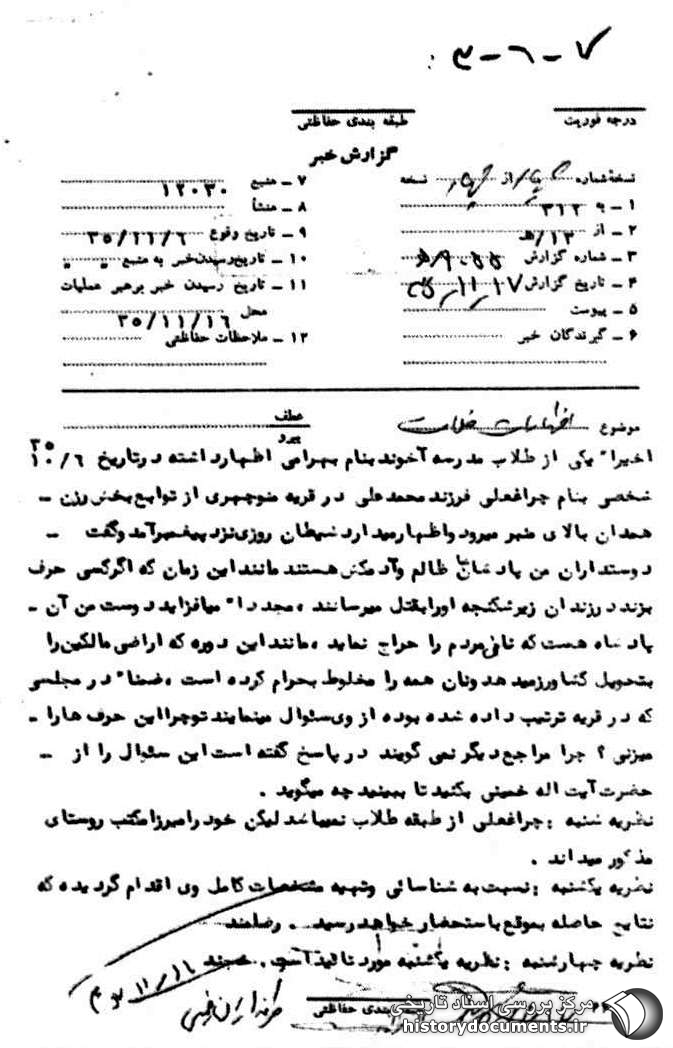 ۷-۶-۳:
درجه فوریت
طبقه بندی حفاظتی
گزارش خبر
نسخهٔ شماره از چهار نسخه
۱ - به ۳۱۲
۲ - از ۱۲/ﻫ
۳ - شماره گزارش ۹۰۵۵/ﻫ
۴ - تاریخ گزارش ۱۷/۱۱/۳۵
۵ - پیوست
۶ - گیرندگان خبر
۷ - منبع ۱۲۰۳۰
۸ - منشأ
۹ - تاریخ وقوع ۳۵/۱۱/۶
۱۰ - تاریخ رسیدن خبر به منبع
۱۱ - تاریخ رسیدن خبر برهبر عملیات
محل ۳۵/۱۱/۱۶
۱۲ - ملاحظات حفاظتی
موضوع اظهارات خلاف
عطف
پیرو
اخیرا" یکی از طلاب مدرسه آخوند بنام بهرامی اظهار داشته در تاریخ ۳۵/۱۰/۶
شخصی بنام چراغعلی فرزند محمدعلی در قریه منوچهری از توابع بخش رزن -
همدان بالای منبر میرود و اظهار میدارد شیطان روزی نزد پیغمبر آمد و گفت -
دوستداران من پادشاهان ظالم و آدمکش هستند مانند این زمان که اگر کسی حرف
بزند در زندان زیر شکنجه او را بقتل میرسانند ، مجددا" میافزاید دوست من آن -
پادشاه هست که نان مردم را حراج نماید ، مانند این دوره که اراضی مالکین را
بتحویل کشاورز میدهد و نان همه را مخلوط بحرام کرده است ، ضمنا" در مجلسی
که در قریه ترتیب داده شده بوده از وی سئوال مینمایند تو چرا این حرف ها را -
میزنی ؟ چرا مراجع دیگر نمی گویند در پاسخ گفته است این سئوال را از -
حضرت آیت اله خمینی بکنید تا ببینید چه میگوید .
نظریه شنبه : چراغعلی از طبقه طلاب نمیباشد لیکن خود را میرزا مکتب روستای
مذکور میداند .
نظریه یکشنبه : نسبت به شناسائی و تهیه مشخصات کامل وی اقدام گردیده که
نتایج حاصله بموقع باستحضار خواهد رسید . رضامند
نظریه چهارشنبه : نظریه یکشنبه مورد تائید است .
طبقه بندی حفاظتی
مرکز بررسی اسناد تاریخی
historydocuments.ir